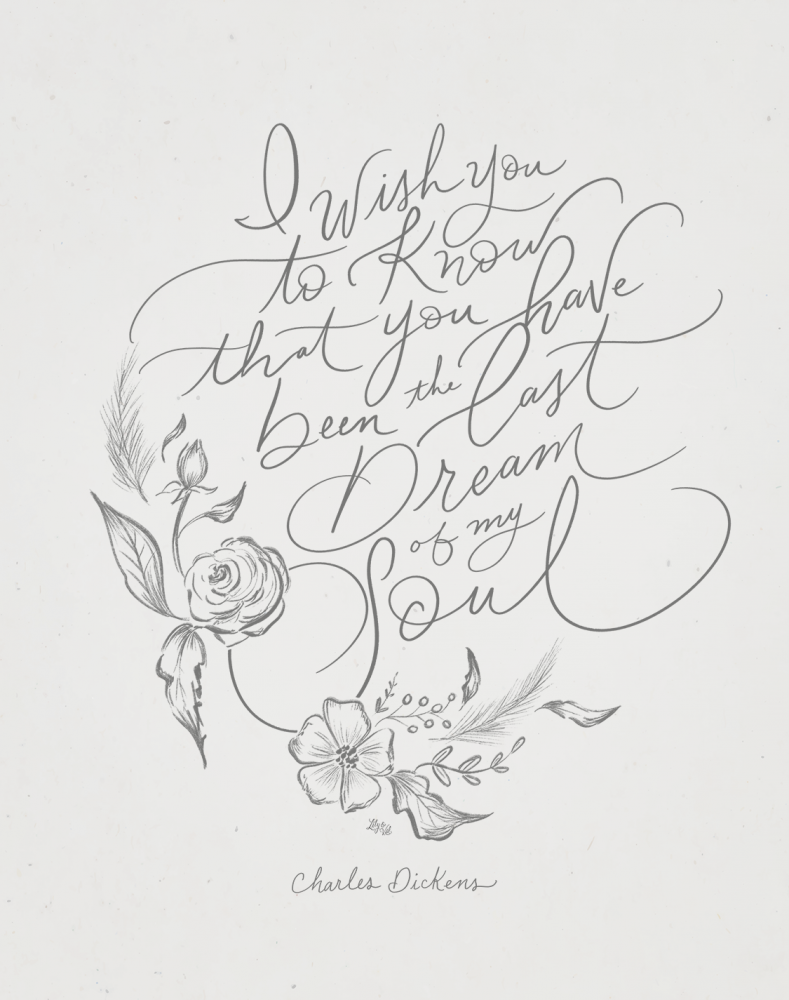 I Wish you
to Know
that you have
been the last
Dream
of my
Soul
Lily & Val
Charles Dickens